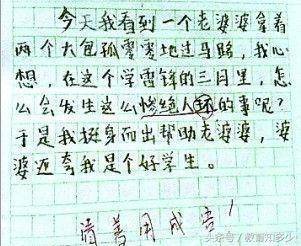 今天我看到一个老婆婆拿着
两个大包孤零零地过马路，我心
想，在这个学雷锋的三月里，怎
么会发生这么惨绝人环的事呢？
于是我挺身而出帮助老婆婆，婆
婆还夸我是个好学生。
请善用成语！
头条号/教育知多少